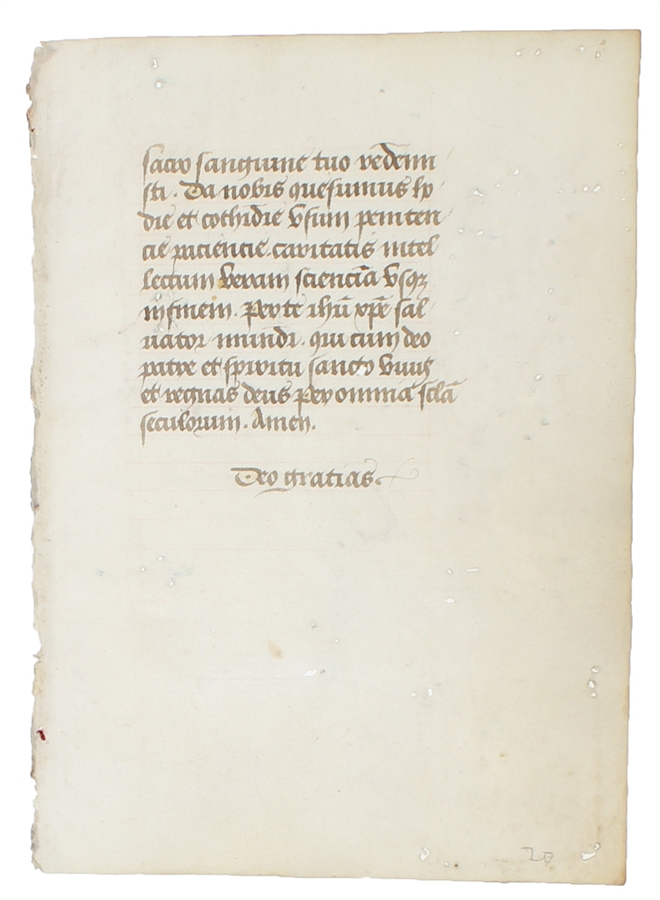 sacro sanguine tuo redemi
sti. Da nobis quesumus ho
die et cothidie vsum peniten
cie paciencie. caritatis intel
lectum veram scienciā vsqꝫ
in finem. Per te ihū xp̄e sal
uator mundi. qui cum deo
patre et spiritu sancto viuis
et regnas deus per omnia sclā
seculorum. Amen.
Deo gratias
20